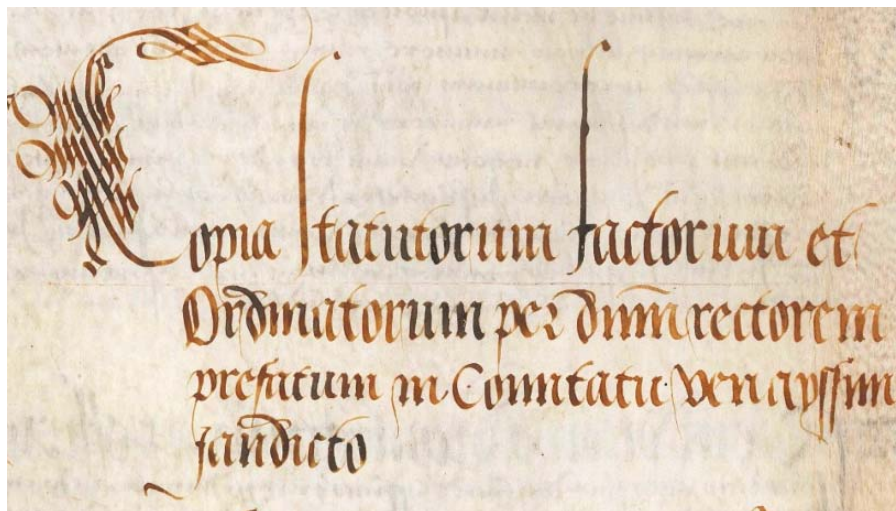 Copia statutorum factorum et
Ordinatorum per dnm rectorem
prefatum in Comitatu venayssim
jandicto